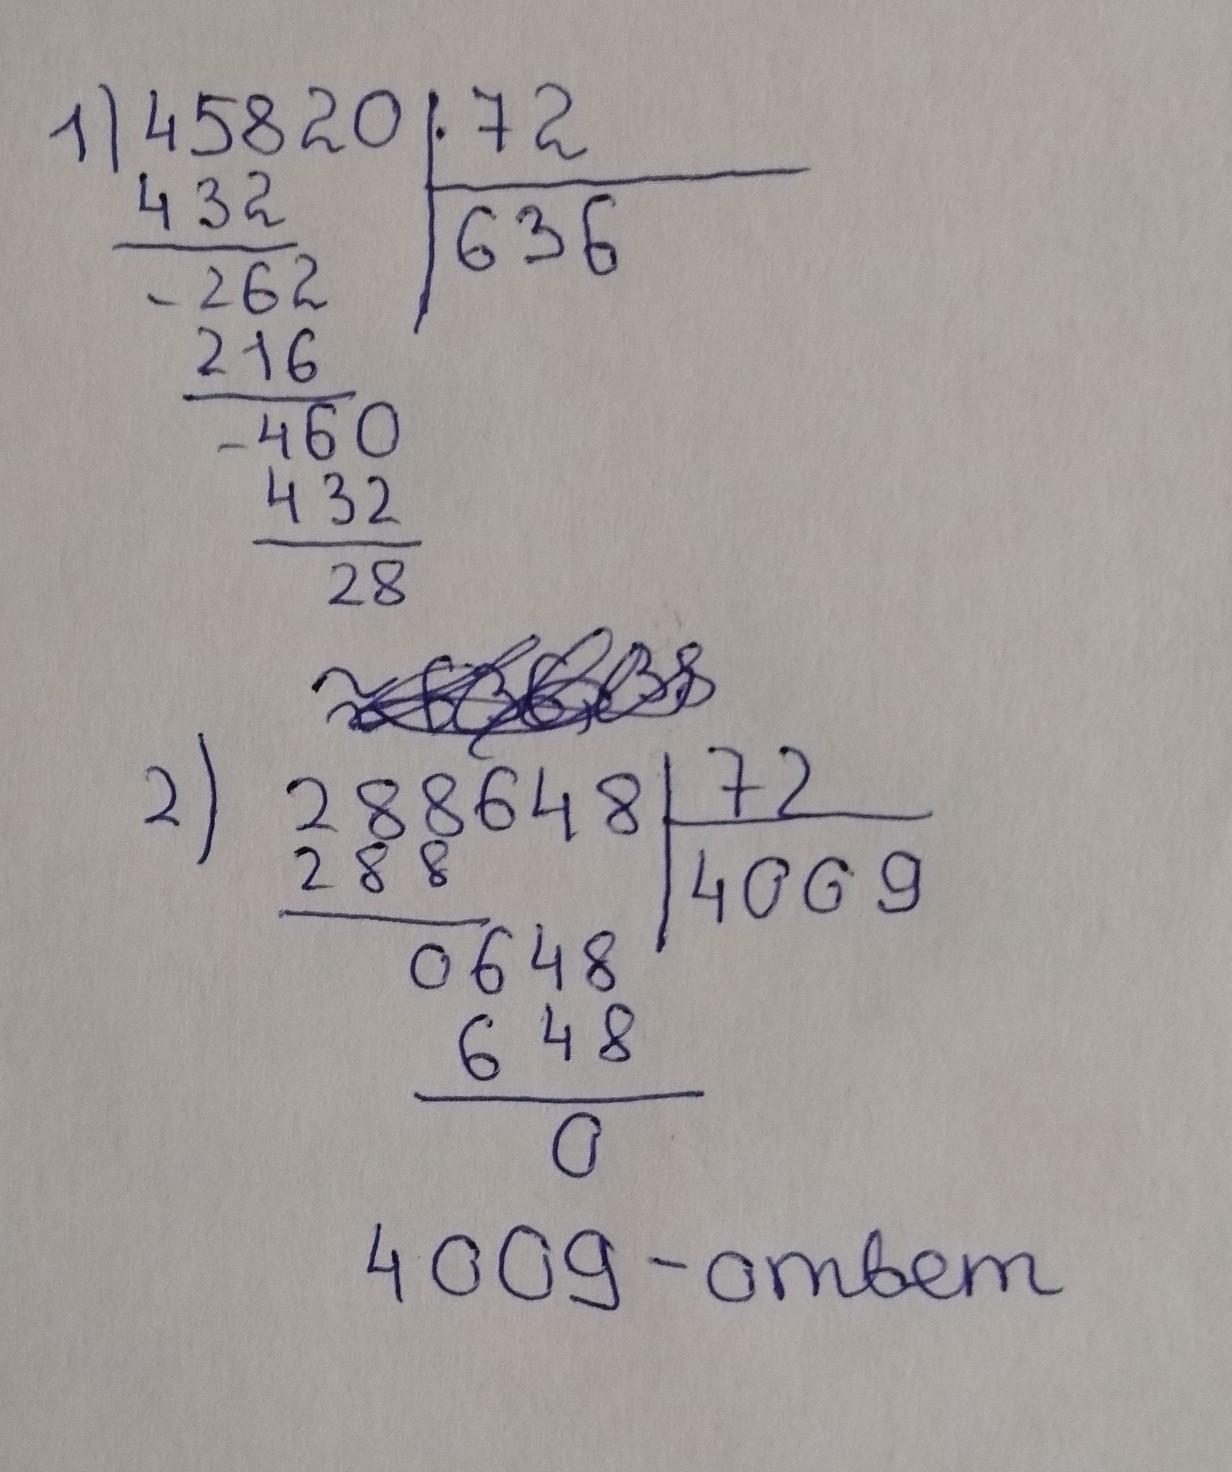 1) 45820 : 72
432
636
-262
216
-460
432
28
2) 288648 72
288
4009
0648
648
0
4009 - ответ